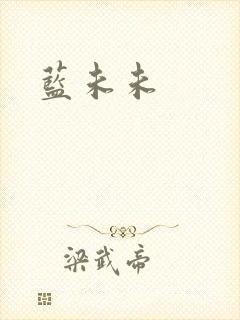 藍未未
梁武帝